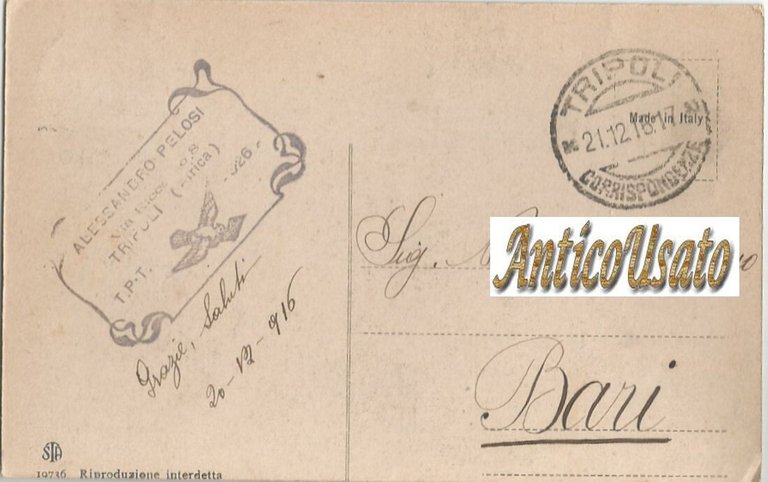 ALESSANDRO PELOSI
TRIPOLI
T.P.T.
Grazie, Saluti
20-12-916
TRIPOLI
21.12.16.17
CORRISPONDENZE
Made in Italy
Sig.
AnticoUsato
Bari
STA
19736 Riproduzione interdetta